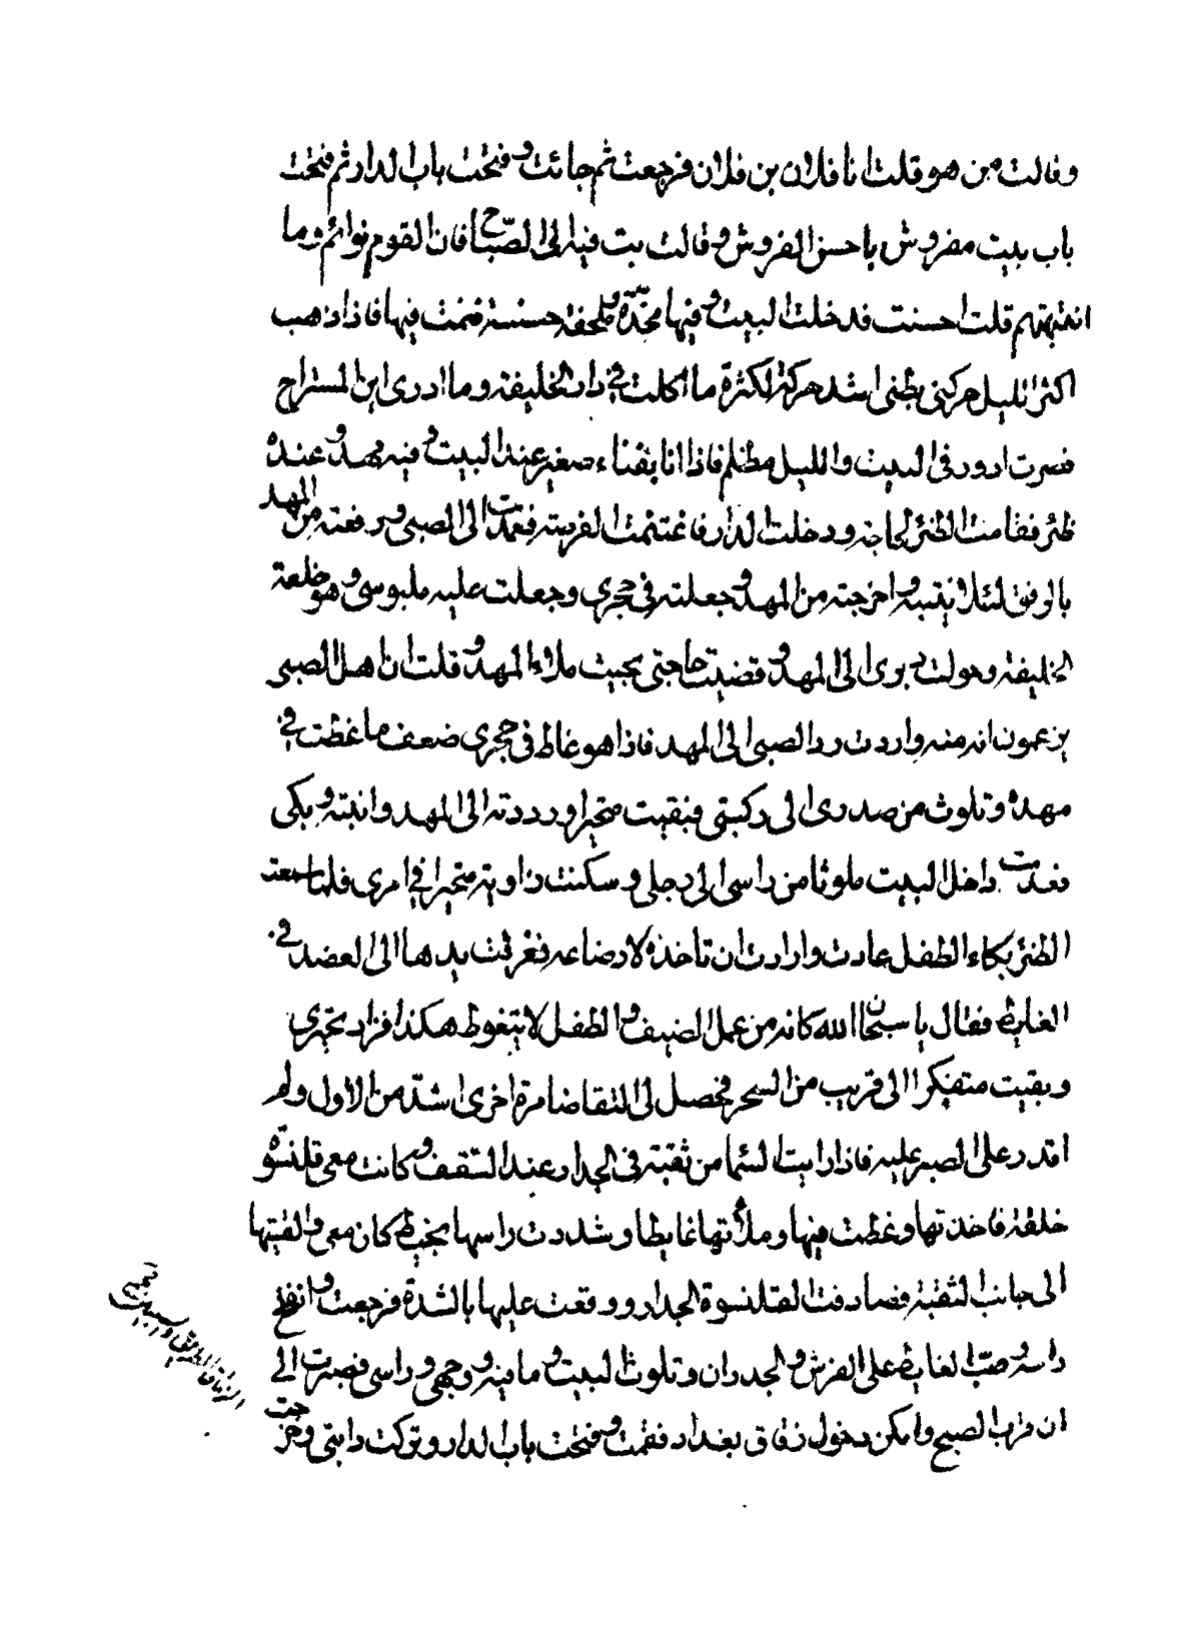 وقالت من هو قلت انا فلان بن فلان فرجعت ثم جائت وفتحت باب الدار ثم فتحت
باب بيت مفروش باحسن الفروش وقالت بت فيه الى الصباح فان القوم نوائم وما
انتبهتهم قلت احسنت فدخلت البيت وفيها مخدّة وملحفة حسنة فنمت فيها فاذا ذهب
اكثر الليل حركني بطني اشد حركة لكثرة ما اكلت في دار الخليفة وما ادرى اين المستراح
فصرت ادور فى البيت والليل مظلم فاذا انا بفناء صغير عند البيت وفيه مهد وعنده
ظئر فقامت الظئر لحاجة ودخلت الدار فاغتنمت الفرصة فعمدت الى الصبى ورفعته من المهد
بالرفق لئلا ينتبه واخرجته من المهد وجعلته فى حجرى وجعلت عليه ملبوسى وهو خلعة
الخليفة وحولت دبرى الى المهد وقضيت حاجتى بحيث ملاء المهد وقلت ان اهل الصبى
يزعمون انه منه واردت رد الصبى الى المهد فاذا هو غاط فى حجرى ضعف ما غطت في
مهده وتلوث من صدرى الى ركبتى فبقيت متحيرا ورددته الى المهد وانتبه وبكى
فعدت داخل البيت ملوثا من راسى الى رجلى وسكنت زاوية متحيرا في امرى فلما سمعت
الظئر بكاء الطفل عادت وارادت ان تاخذه لارضاعه فغرقت يدها الى العضد في
الغايط فقال يا سبحان الله كانه من عمل الضيف والطفل لا يتغوط هكذا فزاد تحيرى
وبقيت متفكرا الى قريب من السحر فحصل لى التقاضا مرة اخرى اشدّ من الاول ولم
اقدر على الصبر عليه فاذا رايت السما من ثقبة فى الجدار عند السقف وكانت معى قلنسوة
خلقة فاخذتها وغطت فيها وملأتها غايطا وشددت راسها بخيط كان معى والقيتها
الى جانب الثقبة فصادفت القلنسوة الجدار ووقعت عليها بالشدة فرجعت وانفتح
راسه وصبّ الغايط على الفرش والجدران وتلوث البيت وما فيه ووجهى وراسى فصبرت الى
ان قرب الصبح وامكن دخول زقاق بغداد فقمت وفتحت باب الدار وتركت دابتى وخرجت